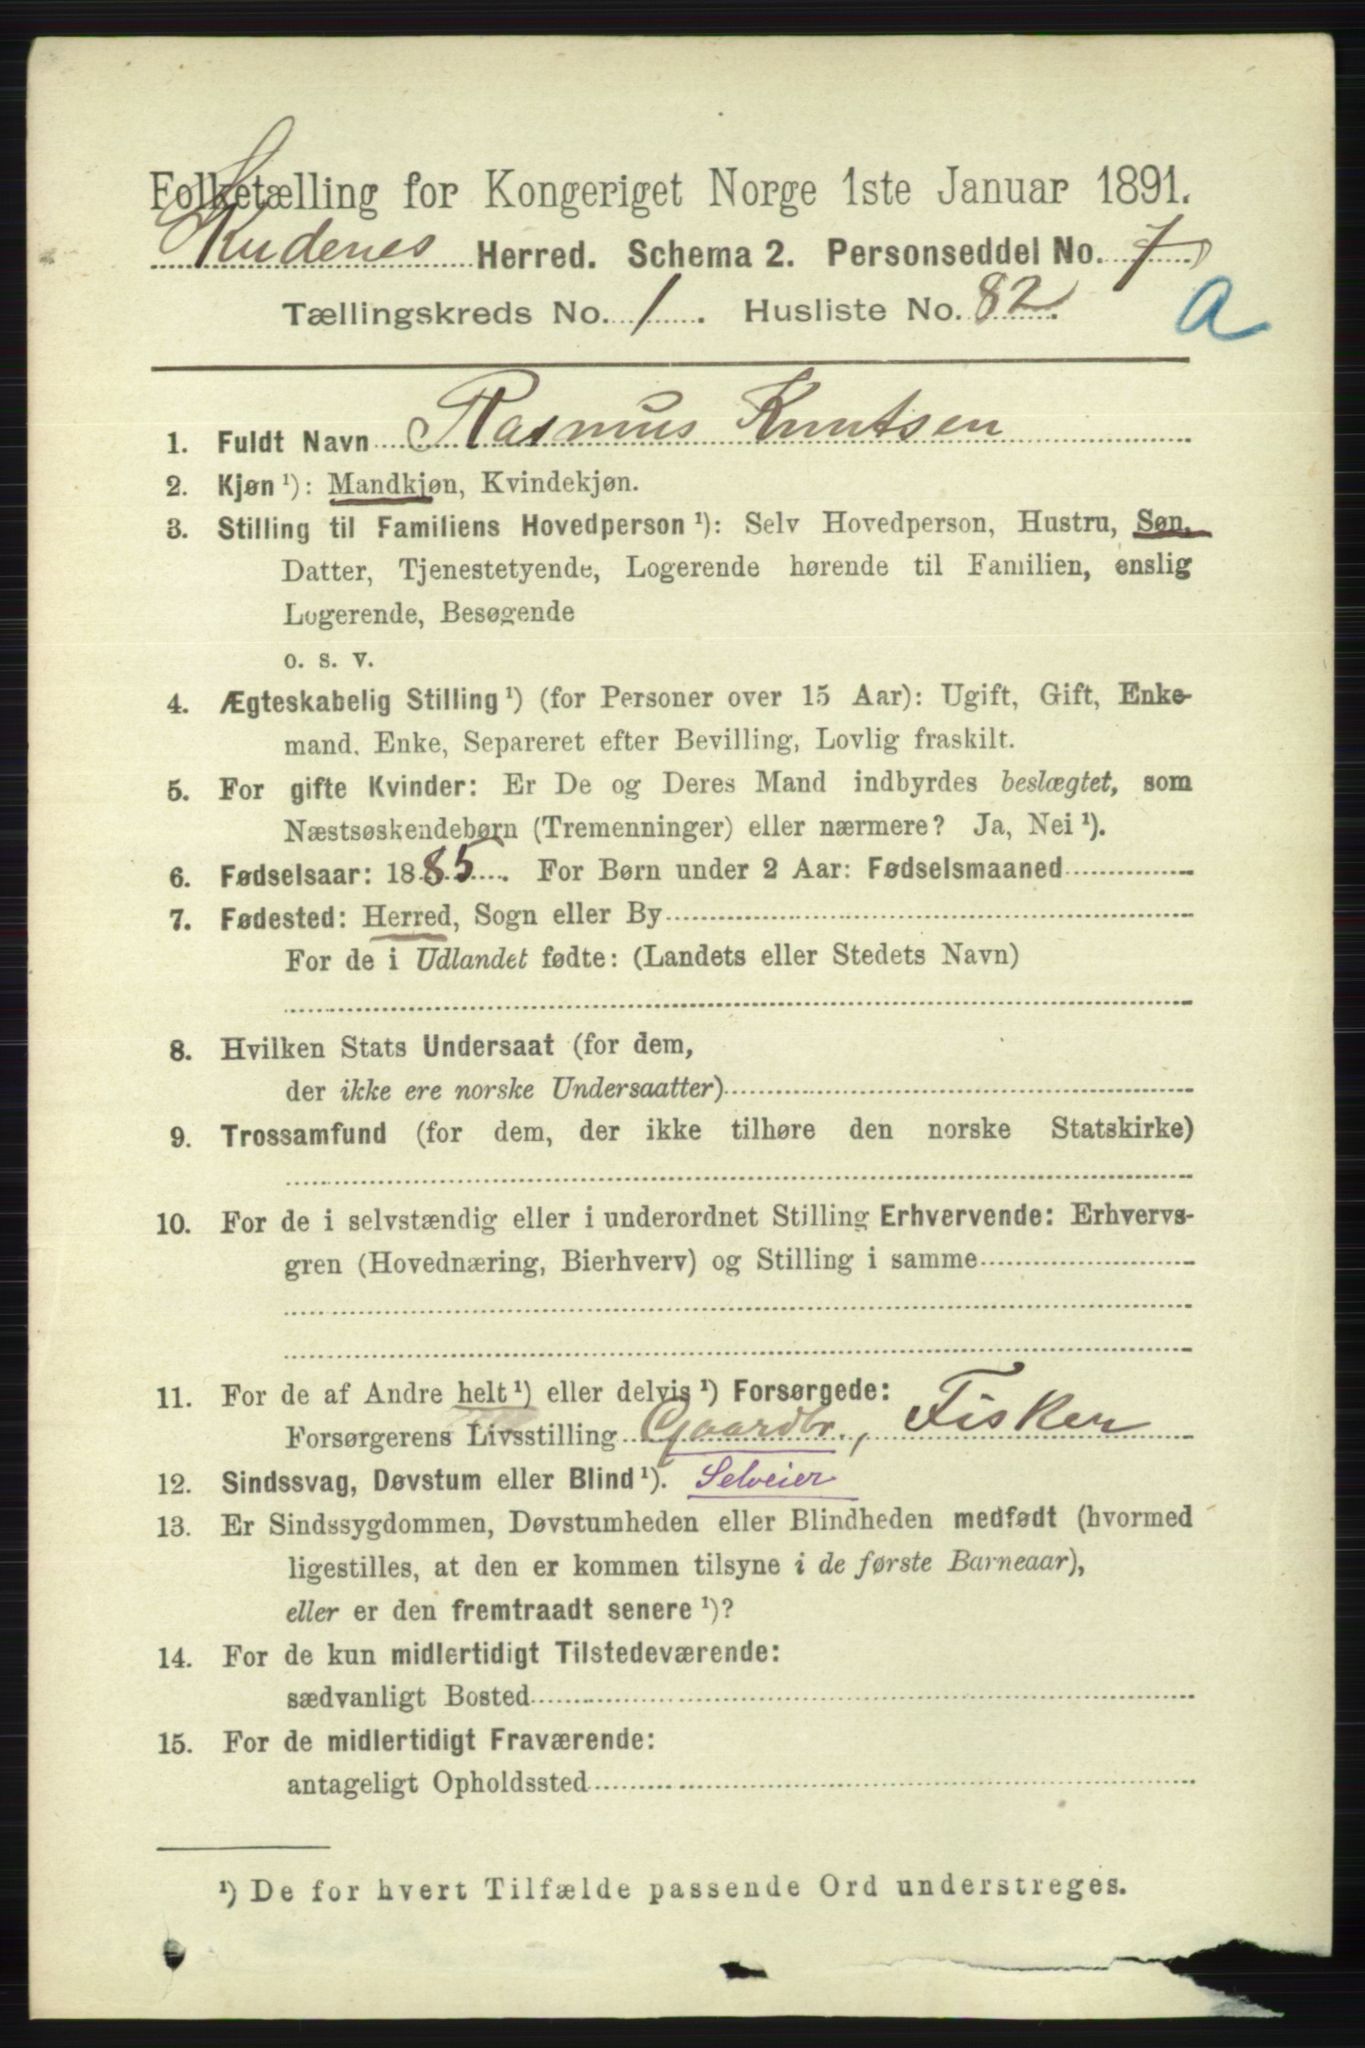 Folketælling for Kongeriget Norge 1ste Januar 1891.
Skudenes Herred. Schema 2. Personseddel No. 7
Tællingskreds No. 1. Husliste No. 82.
a
1. Fuldt Navn Rasmus Knutsen
2. Kjøn ¹): Mandkjøn, Kvindekjøn.
3. Stilling til Familiens Hovedperson ¹): Selv Hovedperson, Hustru, Søn,
Datter, Tjenestetyende, Logerende hørende til Familien, enslig
Logerende, Besøgende
o. s. v.
4. Ægteskabelig Stilling ¹) (for Personer over 15 Aar): Ugift, Gift, Enke-
mand, Enke, Separeret efter Bevilling, Lovlig fraskilt.
5. For gifte Kvinder: Er De og Deres Mand indbyrdes beslægtet, som
Næstsøskendebørn (Tremenninger) eller nærmere? Ja, Nei ¹).
6. Fødselsaar: 1885. For Børn under 2 Aar: Fødselsmaaned
7. Fødested: Herred, Sogn eller By
For de i Udlandet fødte: (Landets eller Stedets Navn)
8. Hvilken Stats Undersaat (for dem,
der ikke ere norske Undersaatter)
9. Trossamfund (for dem, der ikke tilhøre den norske Statskirke)
10. For de i selvstændig eller i underordnet Stilling Erhvervende: Erhvervs-
gren (Hovednæring, Bierhverv) og Stilling i samme
11. For de af Andre helt ¹) eller delvis ¹) Forsørgede:
Forsørgerens Livsstilling Gaardbr., Fisker
12. Sindssvag, Døvstum eller Blind ¹). Selveier
13. Er Sindssygdommen, Døvstumheden eller Blindheden medfødt (hvormed
ligestilles, at den er kommen tilsyne i de første Barneaar),
eller er den fremtraadt senere ¹)?
14. For de kun midlertidigt Tilstedeværende:
sædvanligt Bosted
15. For de midlertidigt Fraværende:
antageligt Opholdssted
¹) De for hvert Tilfælde passende Ord understreges.